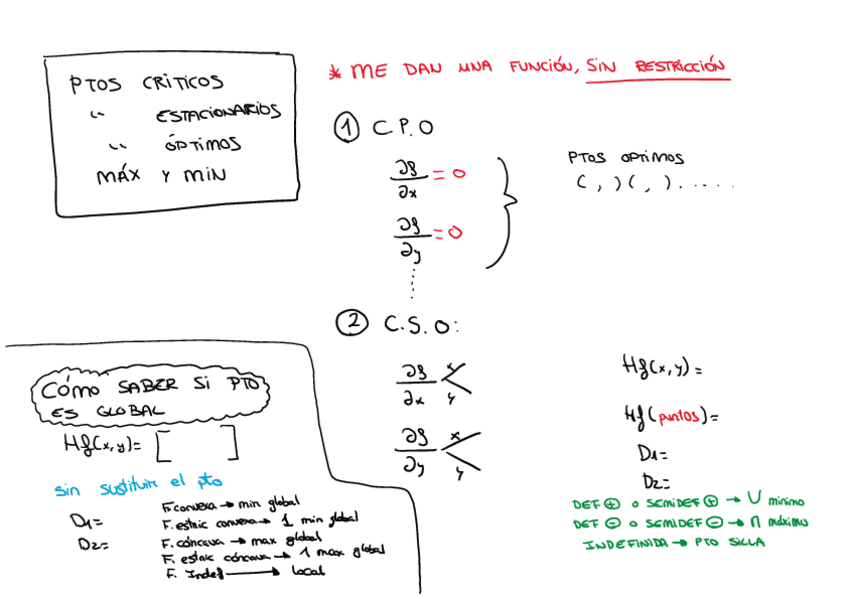 PTOS CRÍTICOS
" ESTACIONARIOS
" ÓPTIMOS
MÁX Y MIN
* ME DAN UNA FUNCIÓN, SIN RESTRICCIÓN
① C.P.O
∂f/∂x = 0
∂f/∂y = 0
PTOS OPTIMOS
( , ) ( , ) . . . . .
② C.S.O:
∂f/∂x < x y
∂f/∂y < x y
Hf(x,y)=
Hf(puntos)=
D₁=
D₂=
DEF ⊕ o SEMIDEF ⊕ → U minimo
DEF ⊖ o SEMIDEF ⊖ → ∩ máximo
INDEFINIDA → PTO SILLA
CÓMO SABER SI PTO
ES GLOBAL
Hf(x,y)= [ ]
sin sustituir el pto
D₁=
D₂=
F. convexa → min global
F. estric convexa → 1 min global
F. cóncava → max global
F. estric cóncava → 1 max global
F. Indef → local